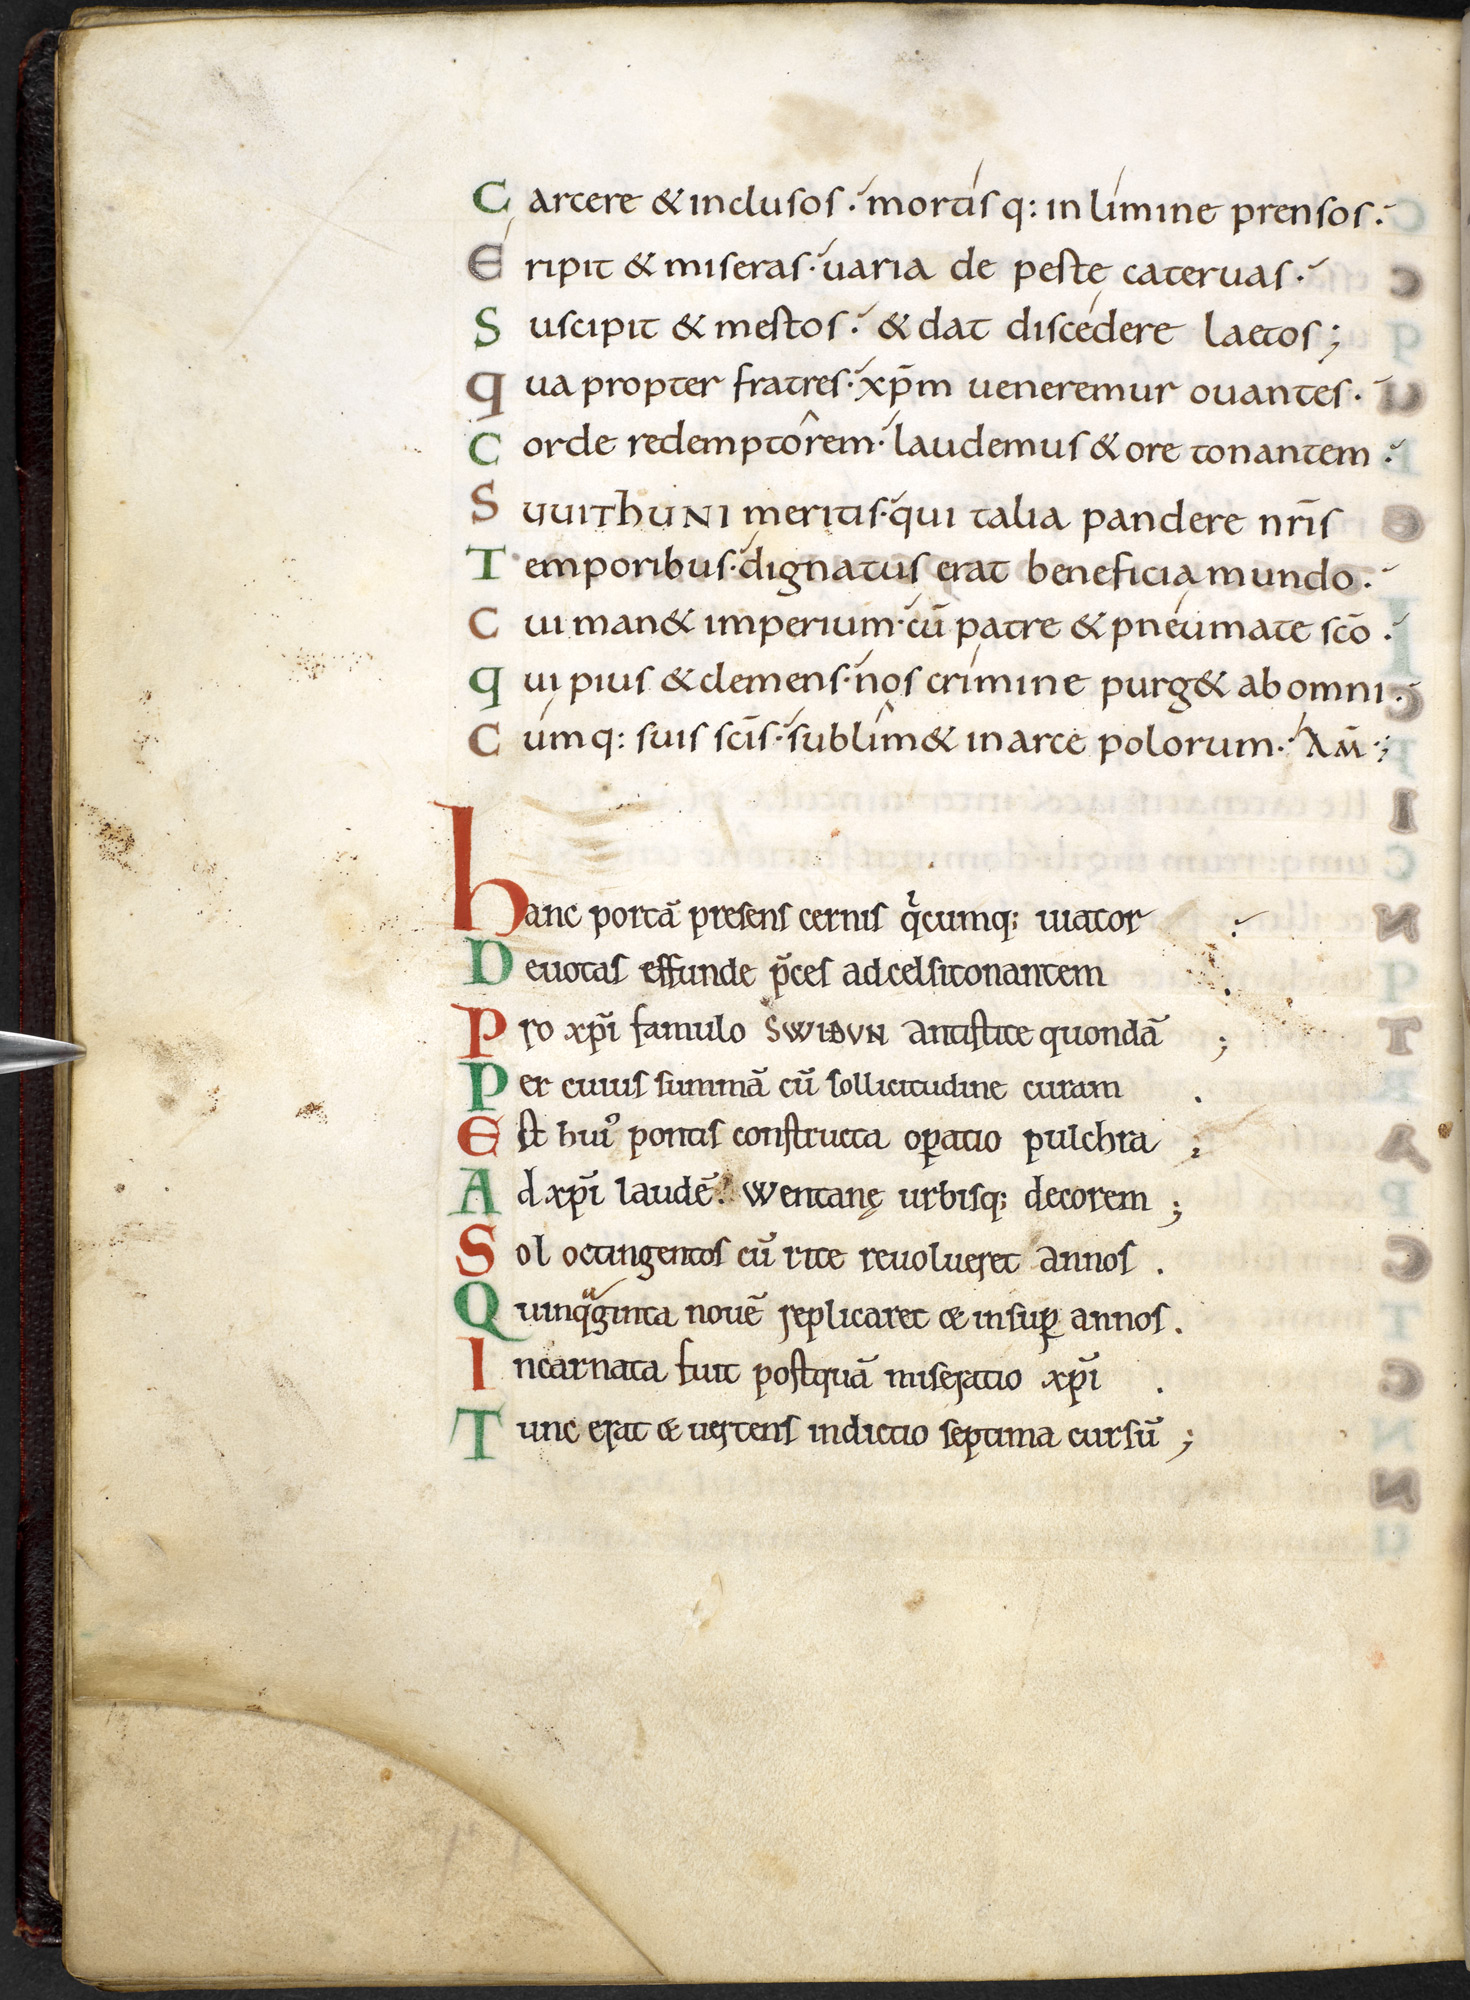 Carcere & inclusos · mortis q: in limine prensos ·
Eripit & miseras · uaria de peste cateruas ·
Suscipit & mestos · & dat discedere laetos ;
qua propter fratres · xp̄m ueneremur ouantes ·
Corde redemptorem · laudemus & ore tonantem ·
SUUIThUNI meritis · qui talia pandere nr̄is
Temporibus · dignatus erat beneficia mundo ·
Cui man& imperium · cū patre & pneumate sc̄o ·
qui pius & clemens · nos crimine purg& ab omni ·
Cumq: suis sc̄is · sublim& in arce polorum · AM̄ ;
hanc portā presens cernis qͥcumq; uiator ·
Deuotas effunde p̄ces ad celsitonantem .
Pro xp̄i famulo SWIÐVN antistite quondā ;
Per cuius summā cū sollicitudine curam .
Est huiꝰ pontis constructa oꝑatio pulchra ;
Ad xp̄i laudē . Wentanę urbisq; decorem ;
Sol octingentos cū rite reuolueret annos .
Quinqᵃginta nouē replicaret & insuꝑ annos .
Incarnata fuit postquā miseratio xp̄i .
Tunc erat & uertens indictio septima cursū ;